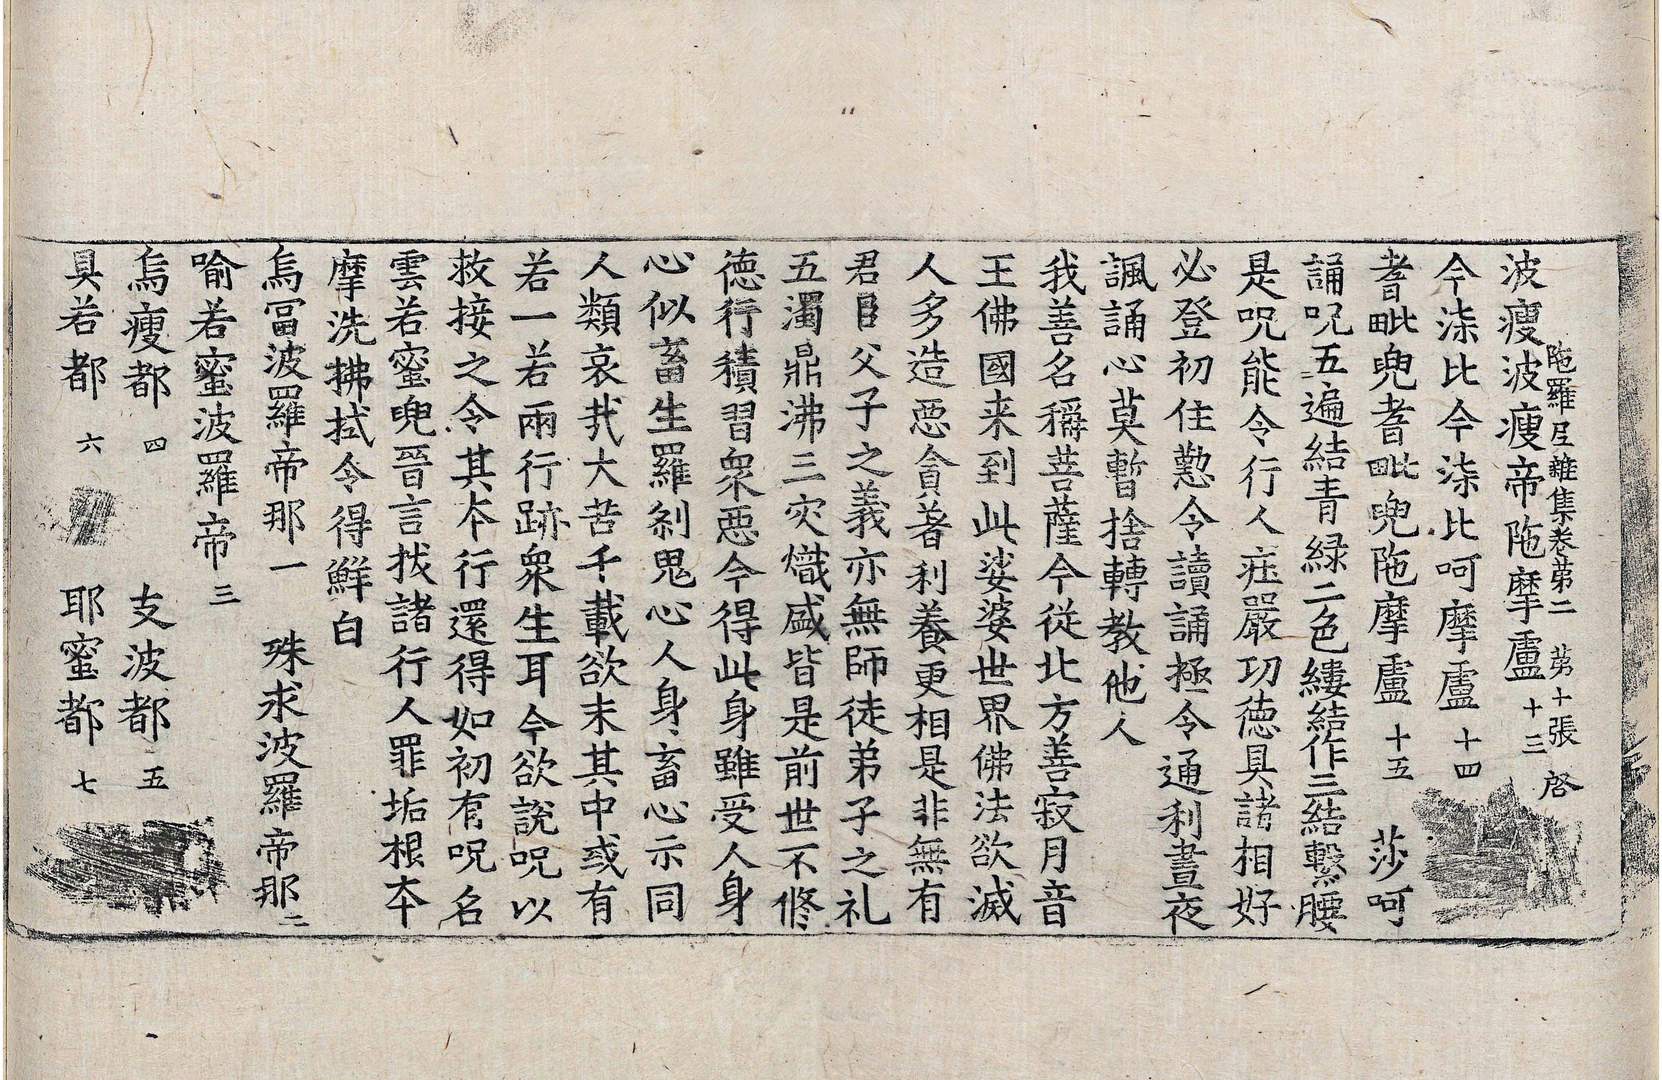 陁羅尼雜集卷苐二　苐十張　啓
波瘦波瘦帝陁摩盧十三
今柒比今柒比呵摩盧十四
耆毗兜耆毗兜陁摩盧十五　莎呵
誦呪五遍結青緑二色縷結作三結繫腰
是呪能令行人疰嚴功徳具諸相好
必登初住懃令讀誦極令通利晝夜
諷誦心莫暫捨轉教他人
我善名稱菩薩今從北方善寂月音
王佛國来到此娑婆世界佛法欲滅
人多造惡貪著利養更相是非無有
君臣父子之義亦無師徒弟子之礼
五濁鼎沸三灾熾盛皆是前世不修
德行積習衆惡今得此身雖受人身
心似畜生羅剎鬼心人身畜心示同
人類哀㢤大苦千載欲末其中或有
若一若兩行跡衆生耳今欲說呪以
救接之令其夲行還得如初有呪名
雲若蜜兜晉言拔諸行人罪垢根夲
摩洗拂拭令得鮮白
烏冨波羅帝那一　殊求波羅帝那二
喻若蜜波羅帝三
烏瘦都四　支波都五
具若都六　耶蜜都七